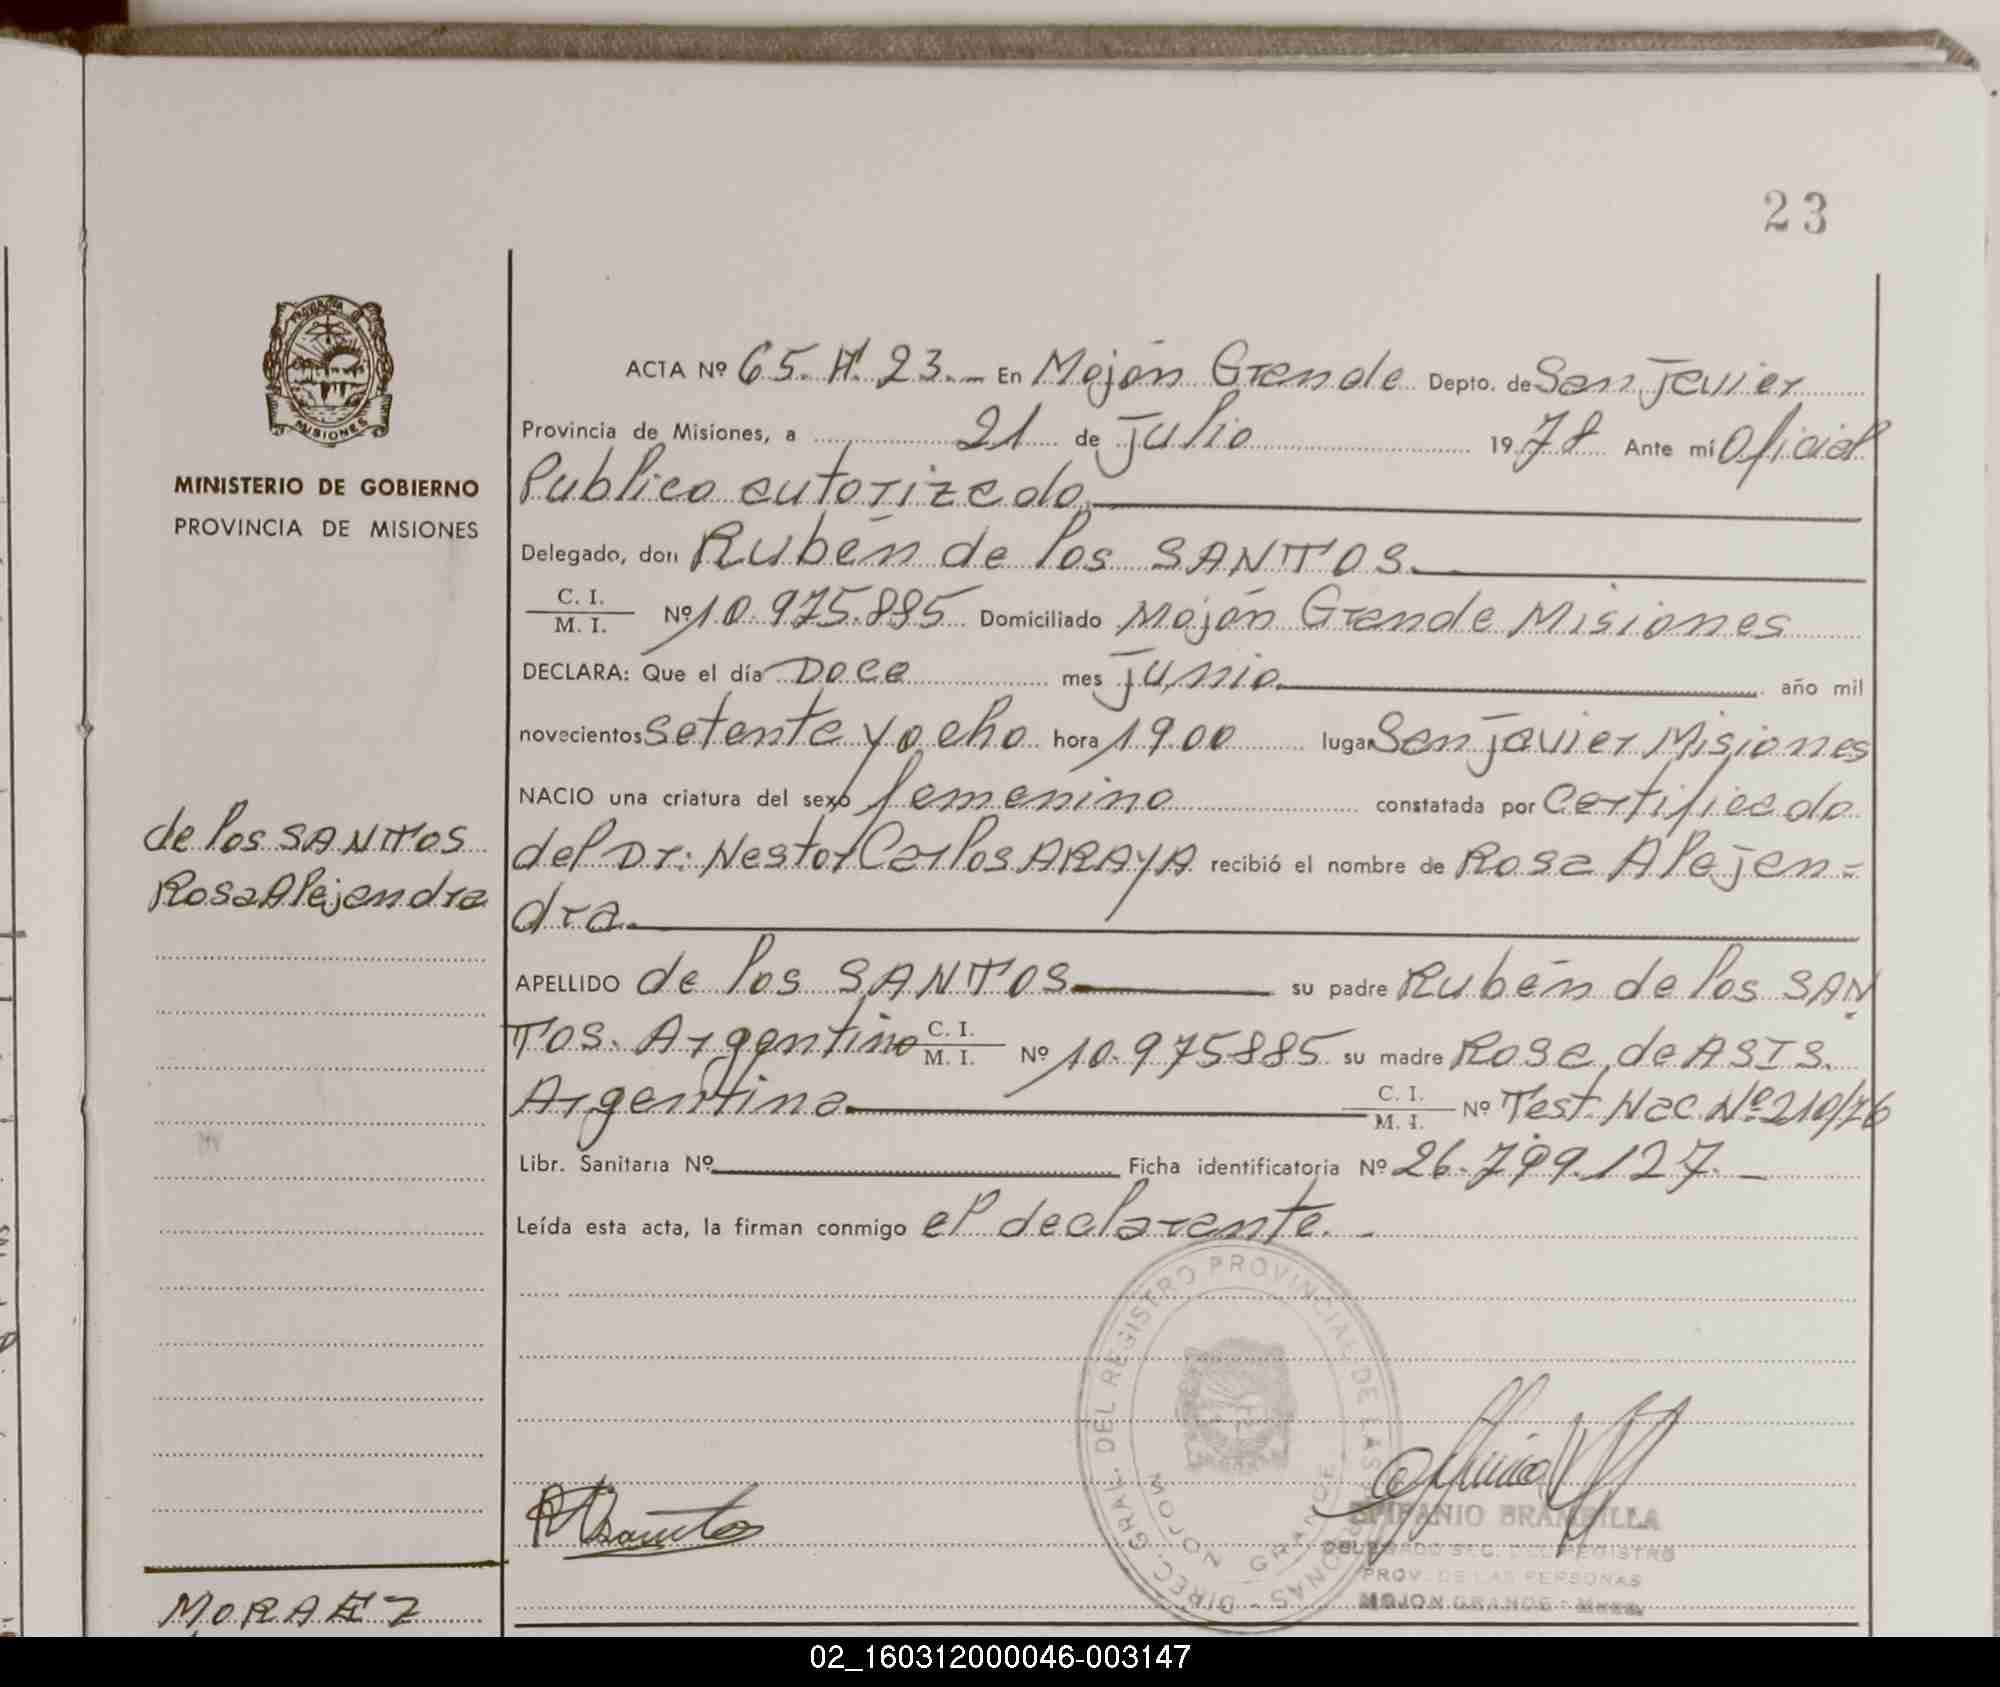 23
PROVINCIA DE
MISIONES
MINISTERIO DE GOBIERNO
PROVINCIA DE MISIONES
de los SANTOS
Rosa Alejandra
ACTA Nº 65. Fº 23.- En Mojón Grande Depto. de San Javier
Provincia de Misiones, a 21 de Julio 1978 Ante mí Oficial
Publico autorizado
Delegado, don Rubén de los SANTOS.
C. I.
M. I. Nº 10.975.885 Domiciliado Mojón Grande Misiones
DECLARA: Que el día Doce mes junio año mil
novecientos setenta y ocho hora 19.00 lugar San Javier Misiones
NACIO una criatura del sexo femenino constatada por Certificado
del Dr: Nestor Carlos ARAYA recibió el nombre de Rosa Alejan=
dra.
APELLIDO de los SANTOS su padre Rubén de los SAN
TOS. Argentino C. I.
M. I. Nº 10.975885 su madre Rosa de ASIS.
Argentina C. I.
M. I. Nº Test. Nac. Nº 210/76
Libr. Sanitaria Nº Ficha identificatoria Nº 26.799.127.-
Leída esta acta, la firman conmigo el declarante.-
DIREC. GRAL. DEL REGISTRO PROVINCIAL DE LAS PERSONAS -
MOJON GRANDE
EPIFANIO BRAMBILLA
DELEGADO SEC. DEL REGISTRO
PROV. DE LAS PERSONAS
MOJON GRANDE -
02_160312000046-003147